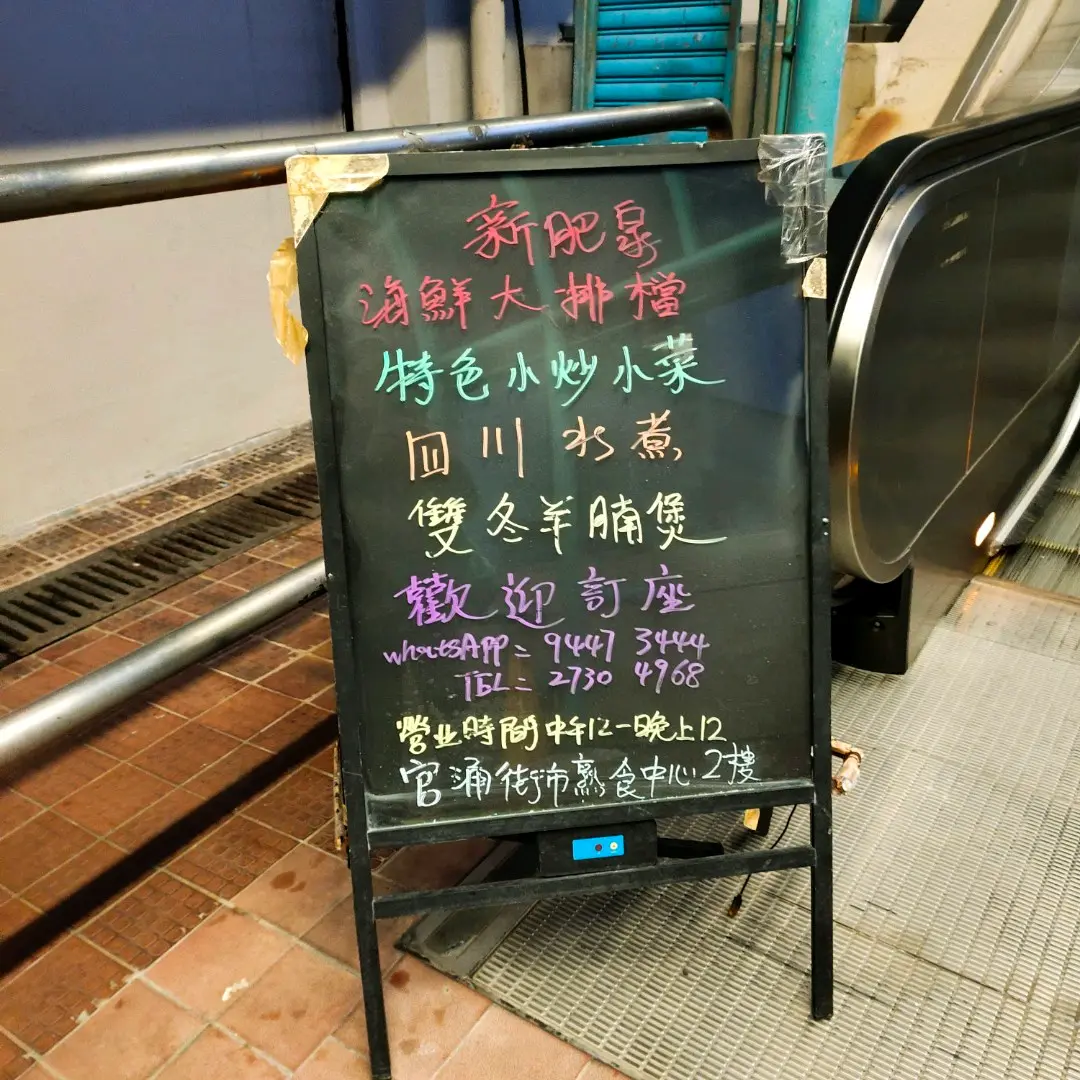 新肥泉
海鮮大排檔
特色小炒小菜
四川水煮
雙冬羊腩煲
歡迎訂座
whatsAPP= 9447 3444
TEL= 2730 4968
營业時間中午12-晚上12
官涌街市熟食中心2樓